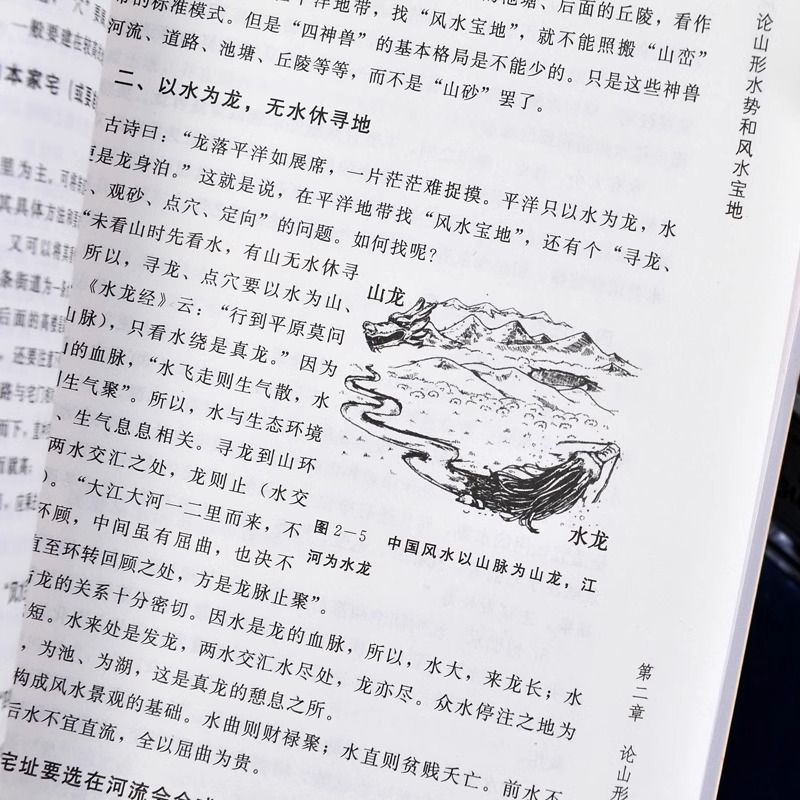 论山形水势和风水宝地
后面的丘陵，看作
的标准模式。但是“四神兽”的基本格局是不能少的。只是这些神兽
河流、道路、池塘、丘陵等等，而不是“山砂”罢了。
二、以水为龙，无水休寻地
古诗曰：“龙落平洋如展席，一片茫茫难捉摸。平洋只以水为龙，水
更是龙身泊。”这就是说，在平洋地带找“风水宝地”，还有个“寻龙、
、观砂、点穴、定向”的问题。如何找呢？
“未看山时先看水，有山无水休寻
所以，寻龙、点穴要以水为山、
《水龙经》云：“行到平原莫问
山脉），只看水绕是真龙。”因为
的血脉，“水飞走则生气散，水
则生气聚”。所以，水与生态环境
、生气息息相关。寻龙到山环
两水交汇之处，龙则止（水交
）。“大江大河一二里而来，不
环顾，中间虽有屈曲，也决不
直至环转回顾之处，方是龙脉止聚”。
龙的关系十分密切。因水是龙的血脉，所以，水大，来龙长；水
短。水来处是发龙，两水交汇水尽处，龙亦尽。众水停注之地为
，为池、为湖，这是真龙的憩息之所。
构成风水景观的基础。水曲则财禄聚；水直则贫贱夭亡。前水不
后水不宜直流，全以屈曲为贵。
宅址要选在河流会合
山龙
水龙
图2—5 中国风水以山脉为山龙，江
河为水龙
第二章 论山形
一般要建在较高
本家宅（或要
里为主，可将
其具体方法和
又可以将其
条街道为一条
后面的高楼
，还要注意
路与宅门
而下，直